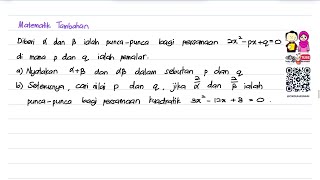 Matematik Tambahan
Diberi α dan β ialah punca-punca bagi persamaan 2x²-px+q=0
di mana p dan q ialah pemalar.
a) Nyatakan α+β dan αβ dalam sebutan p dan q
b) Seterusnya, cari nilai p dan q, jika 2/α dan 2/β ialah
punca-punca bagi persamaan kuadratik 3x²-12x+8=0.